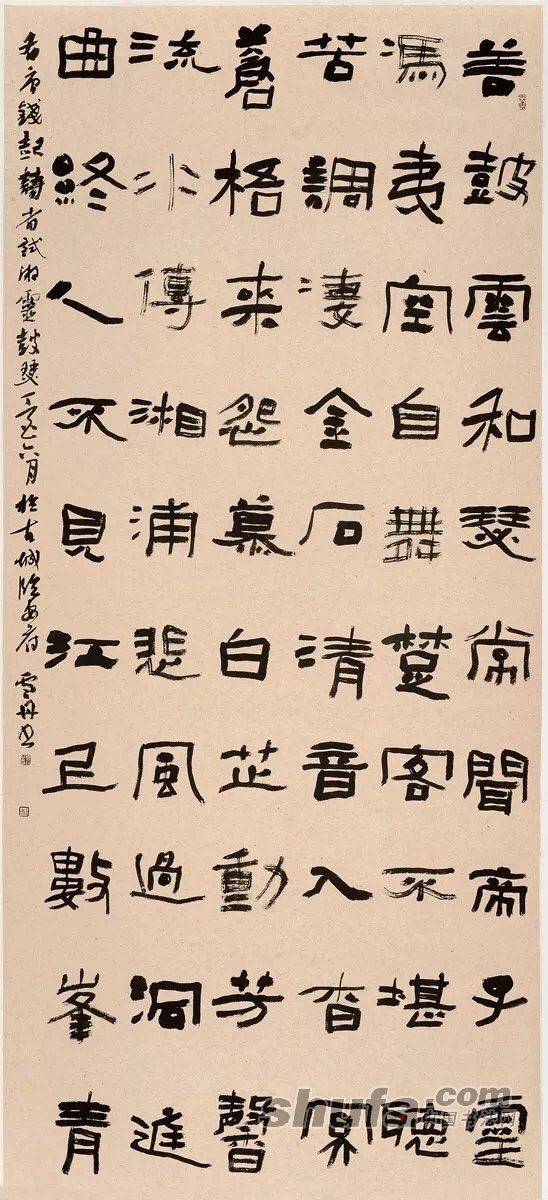 善鼓雲和瑟常聞帝子靈
馮夷空自舞楚客不堪聽
苦調淒金石清音入杳冥
蒼格来怨慕白芷動芳馨
流水傳湘浦悲風過洞庭
曲終人不見江上數峯青
錢起詩省試湘靈鼓瑟丁六月於古城臨安府
shufa.com
中国书法网